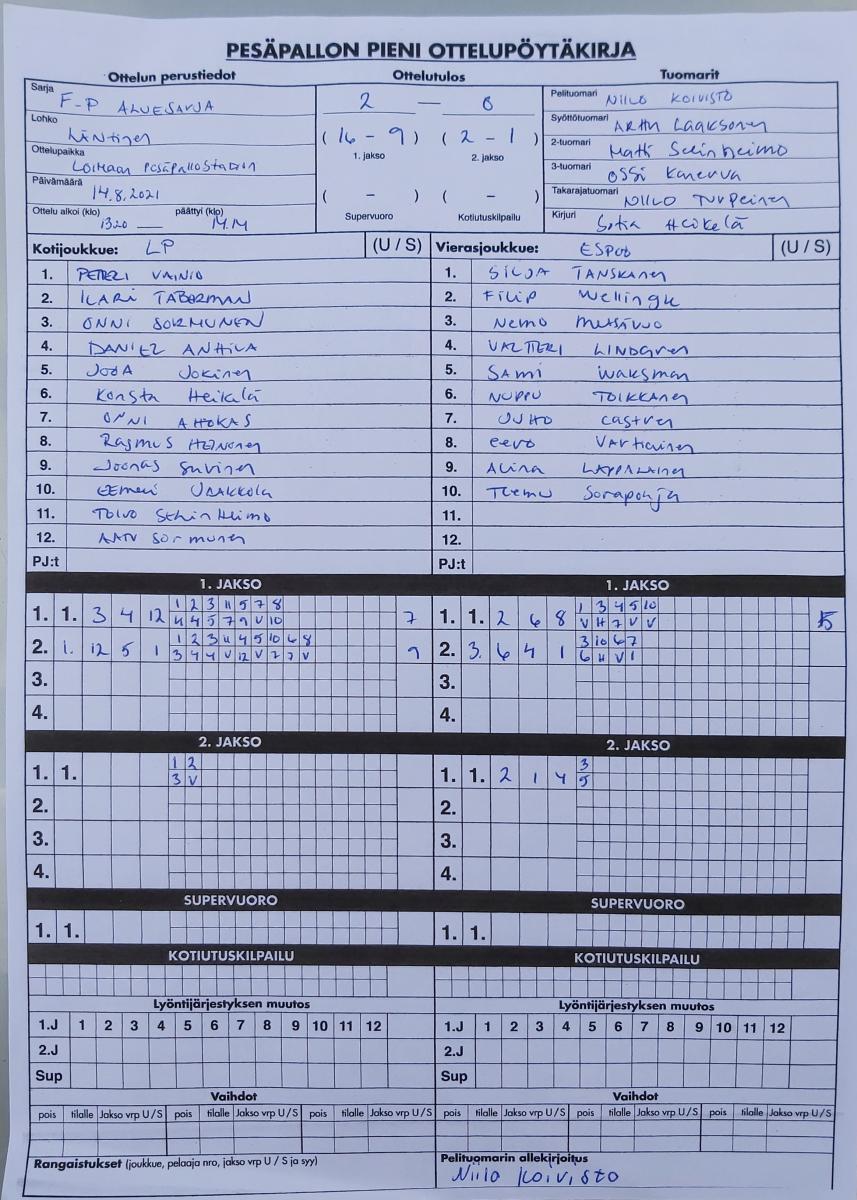 PESÄPALLON PIENI OTTELUPÖYTÄKIRJA
Ottelun perustiedot
Ottelutulos
Tuomarit
Sarja F-P ALUESARJA
Lohko LÄNTINEN
Ottelupaikka LOIMAAN PESÄPALLOSTADION
Päivämäärä 14.8.2021
Ottelu alkoi (klo) 1320 päättyi (klo) 14.14
2 — 0
(16 - 9) (2 - 1)
1. jakso 2. jakso
( - ) ( - )
Supervuoro Kotiutuskilpailu
Pelituomari NIILO KOIVISTO
Syöttötuomari Laaksonen
2-tuomari Matti
3-tuomari OSSI Kanerva
Takarajatuomari NIILO Turpeinen
Kirjuri Sofia Heikelä
Kotijoukkue: LP (U / S)
1. PETTERI VAINIO
2. ILARI TABERMAN
3. ONNI SORMUNEN
4. DANIEL ANTTILA
5. JOONA Jokinen
6. Konsta Heikelä
7. ONNI AHOKAS
8. Rasmus HEINONEN
9. Joonas Suvinen
10. EEMELI JAAKKOLA
11. TOIVO
12. AATU Sormunen
PJ:t
Vierasjoukkue: ESPOO (U / S)
1. SILJA TANSKANEN
2. Filip Wellingk
3. Nemo Metsävuo
4. VALTTERI LINDGREN
5. SAMI Waksman
6. NUPPU TOIKKANEN
7. JUHO Castren
8. eero Vartiainen
9. Alina LAPPALAINEN
10. Teemu Sorapohja
11.
12.
PJ:t
1. JAKSO
1. 1. 3 4 12 1 2 3 11 5 7 8 7
4 4 5 7 9 V 10
2. 1. 12 5 1 1 2 3 11 4 5 10 6 8 9
3 4 4 V 12 V 7 7 V
3.
4.
1. JAKSO
1. 1. 2 6 8 1 3 4 5 10 5
V H 7 V V
2. 3. 6 4 1 3 10 6 7
6 H V 1
3.
4.
2. JAKSO
1. 1. 1 2
3 V
2.
3.
4.
2. JAKSO
1. 1. 2 1 4 3
5
2.
3.
4.
SUPERVUORO
1. 1.
SUPERVUORO
1. 1.
KOTIUTUSKILPAILU
KOTIUTUSKILPAILU
Lyöntijärjestyksen muutos
1.J 1 2 3 4 5 6 7 8 9 10 11 12
2.J
Sup
Lyöntijärjestyksen muutos
1.J 1 2 3 4 5 6 7 8 9 10 11 12
2.J
Sup
Vaihdot
pois tilalle Jakso vrp U/S pois tilalle Jakso vrp U/S pois tilalle Jakso vrp U/S
Vaihdot
pois tilalle Jakso vrp U/S pois tilalle Jakso vrp U/S pois tilalle Jakso vrp U/S
Rangaistukset (joukkue, pelaaja nro, jakso vrp U / S ja syy)
Pelituomarin allekirjoitus
Niilo Koivisto